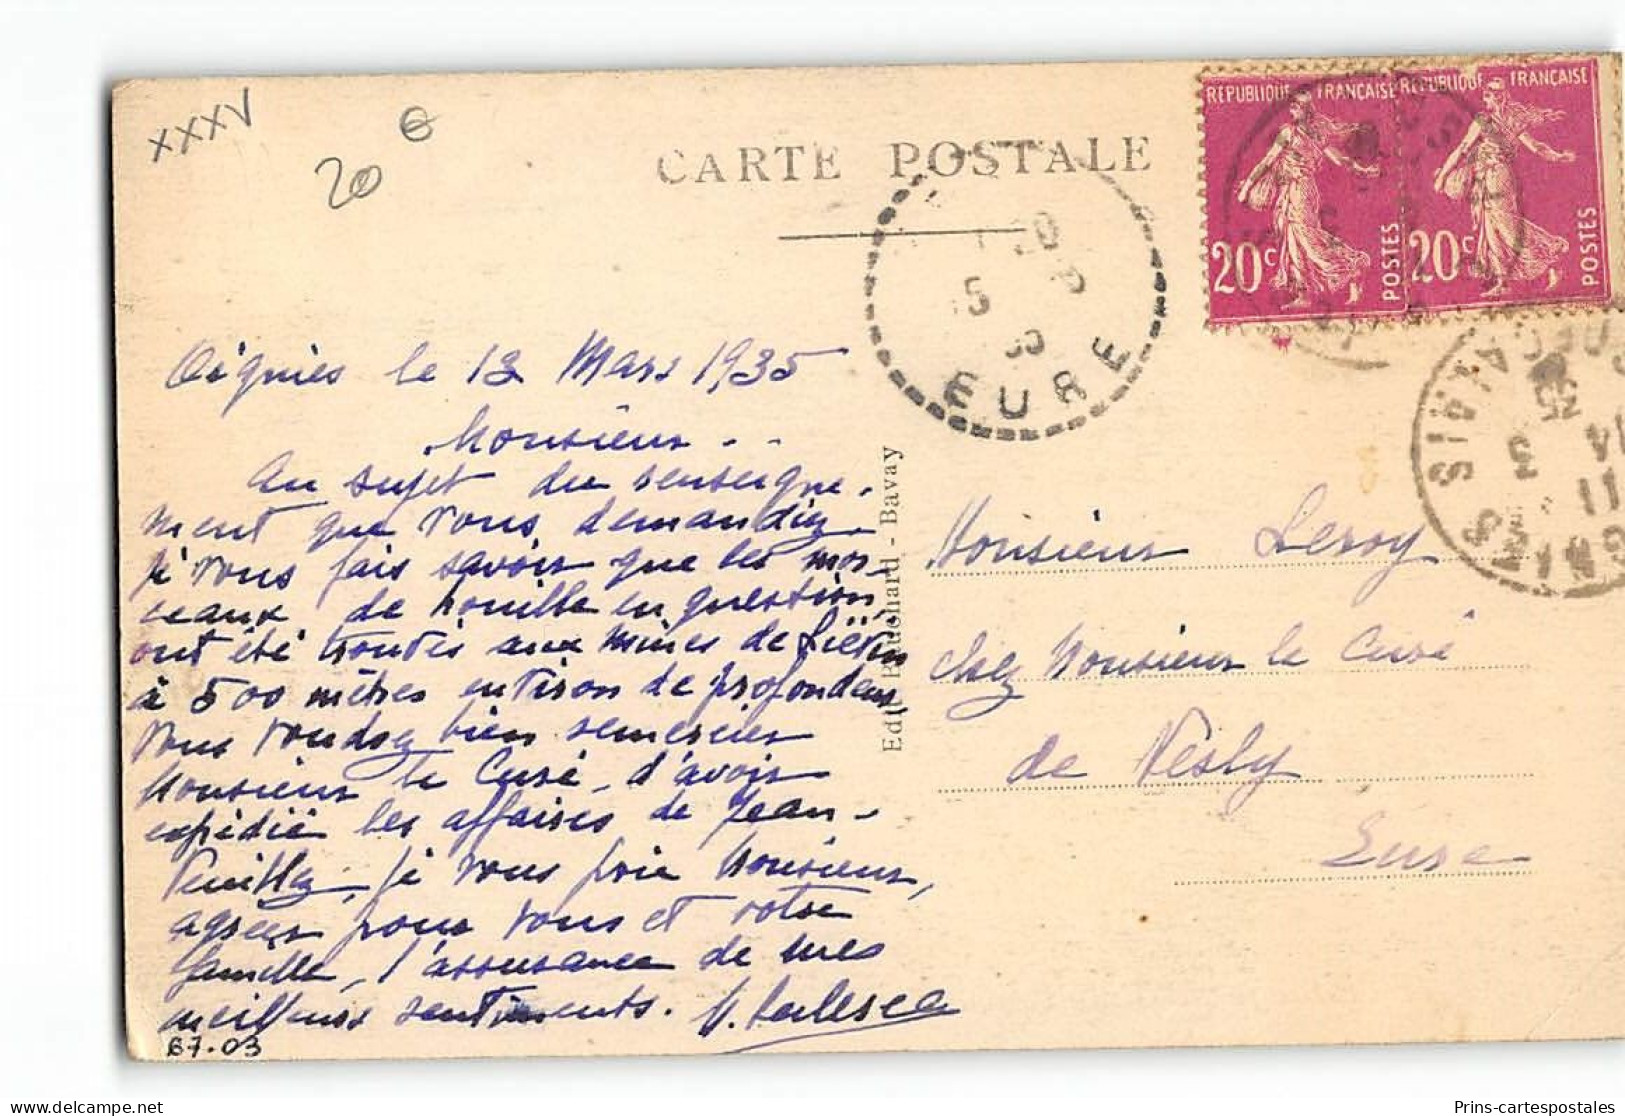 XXXV
20 €
CARTE POSTALE
REPUBLIQUE FRANÇAISE
20c POSTES
REPUBLIQUE FRANÇAISE
20c POSTES
EURE
Oignies le 13 Mars 1935
Monsieur - -
Au sujet du renseigne-
ment que vous demandiez
je vous fais savoir que les mor-
ceaux de houille en question,
ont été trouvés aux mines de
à 500 mètres environ de profondeur
Vous voudrez bien remercier
Monsieur le Curé, d'avoir
expédié les affaires de Jean-
je vous prie Monsieur,
agréer pour vous et votre
famille, l'assurance de mes
meilleurs sentiments.
67-03
Bavay
Monsieur Leroy
chez Monsieur le Curé
de Vesly
Eure
Prins-cartespostales